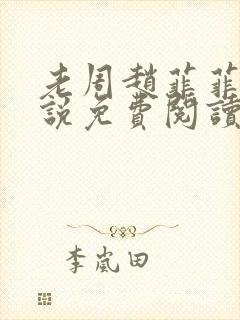 老周趙菲菲
說免費閱讀
李嵐田